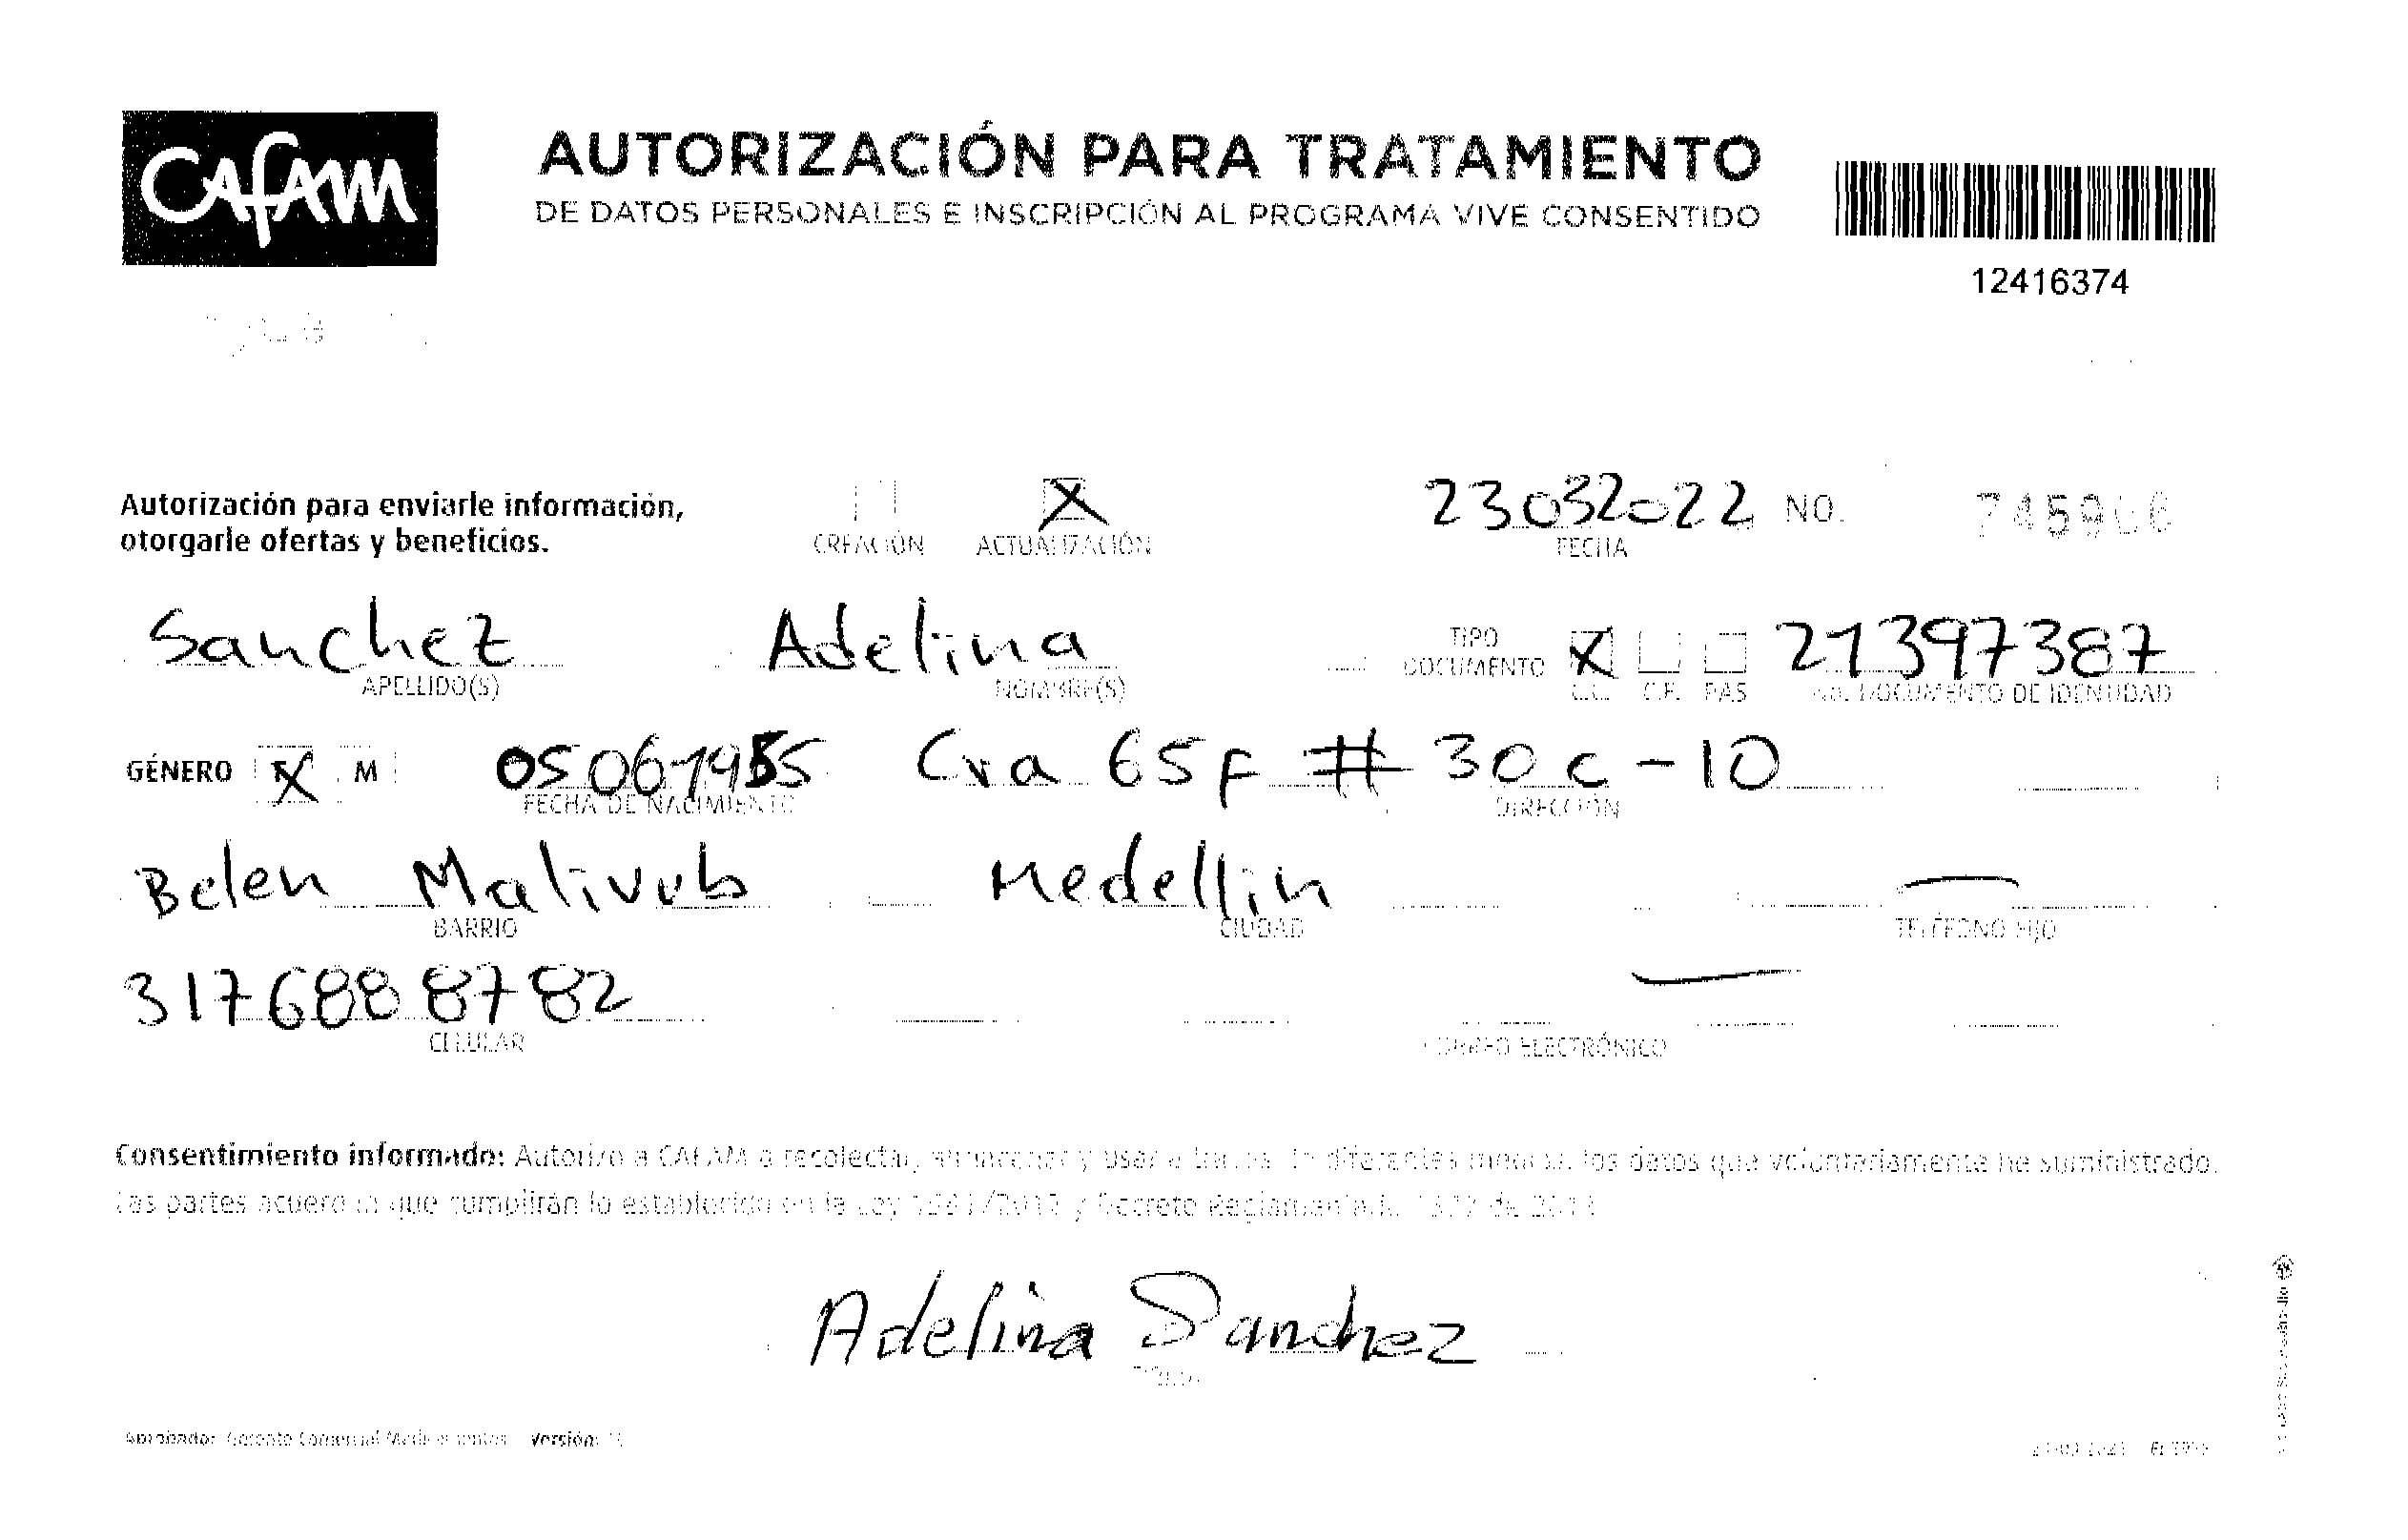 CAFAM
AUTORIZACIÓN PARA TRATAMIENTO
DE DATOS PERSONALES E INSCRIPCIÓN AL PROGRAMA VIVE CONSENTIDO
12416374
Autorización para enviarle información,
otorgarle ofertas y beneficios.
CREACIÓN X ACTUALIZACIÓN
23032022 NO. 745906
FECHA
Sanchez Adelina TIPO DOCUMENTO X 21397387
APELLIDO(S) NOMBRE(S) C.C. C.E. PAS NO. DOCUMENTO DE IDENTIDAD
GÉNERO F X M 05061955 Cra 65F # 30c-10
FECHA DE NACIMIENTO DIRECCIÓN
Belen Medellin
BARRIO CIUDAD TELÉFONO FIJO
3176888782
CELULAR CORREO ELECTRÓNICO
Consentimiento informado: Autorizo a CAFAM a recolectar, almacenar y usar a través de diferentes medios, los datos que voluntariamente he suministrado.
Las partes acuerdan que cumplirán lo establecido en la Ley 1581/2012 y Decreto Reglamentario 1377 de 2013
Adelina Sanchez
FIRMA
Aprobado: Gerente Comercial Medicamentos Versión: